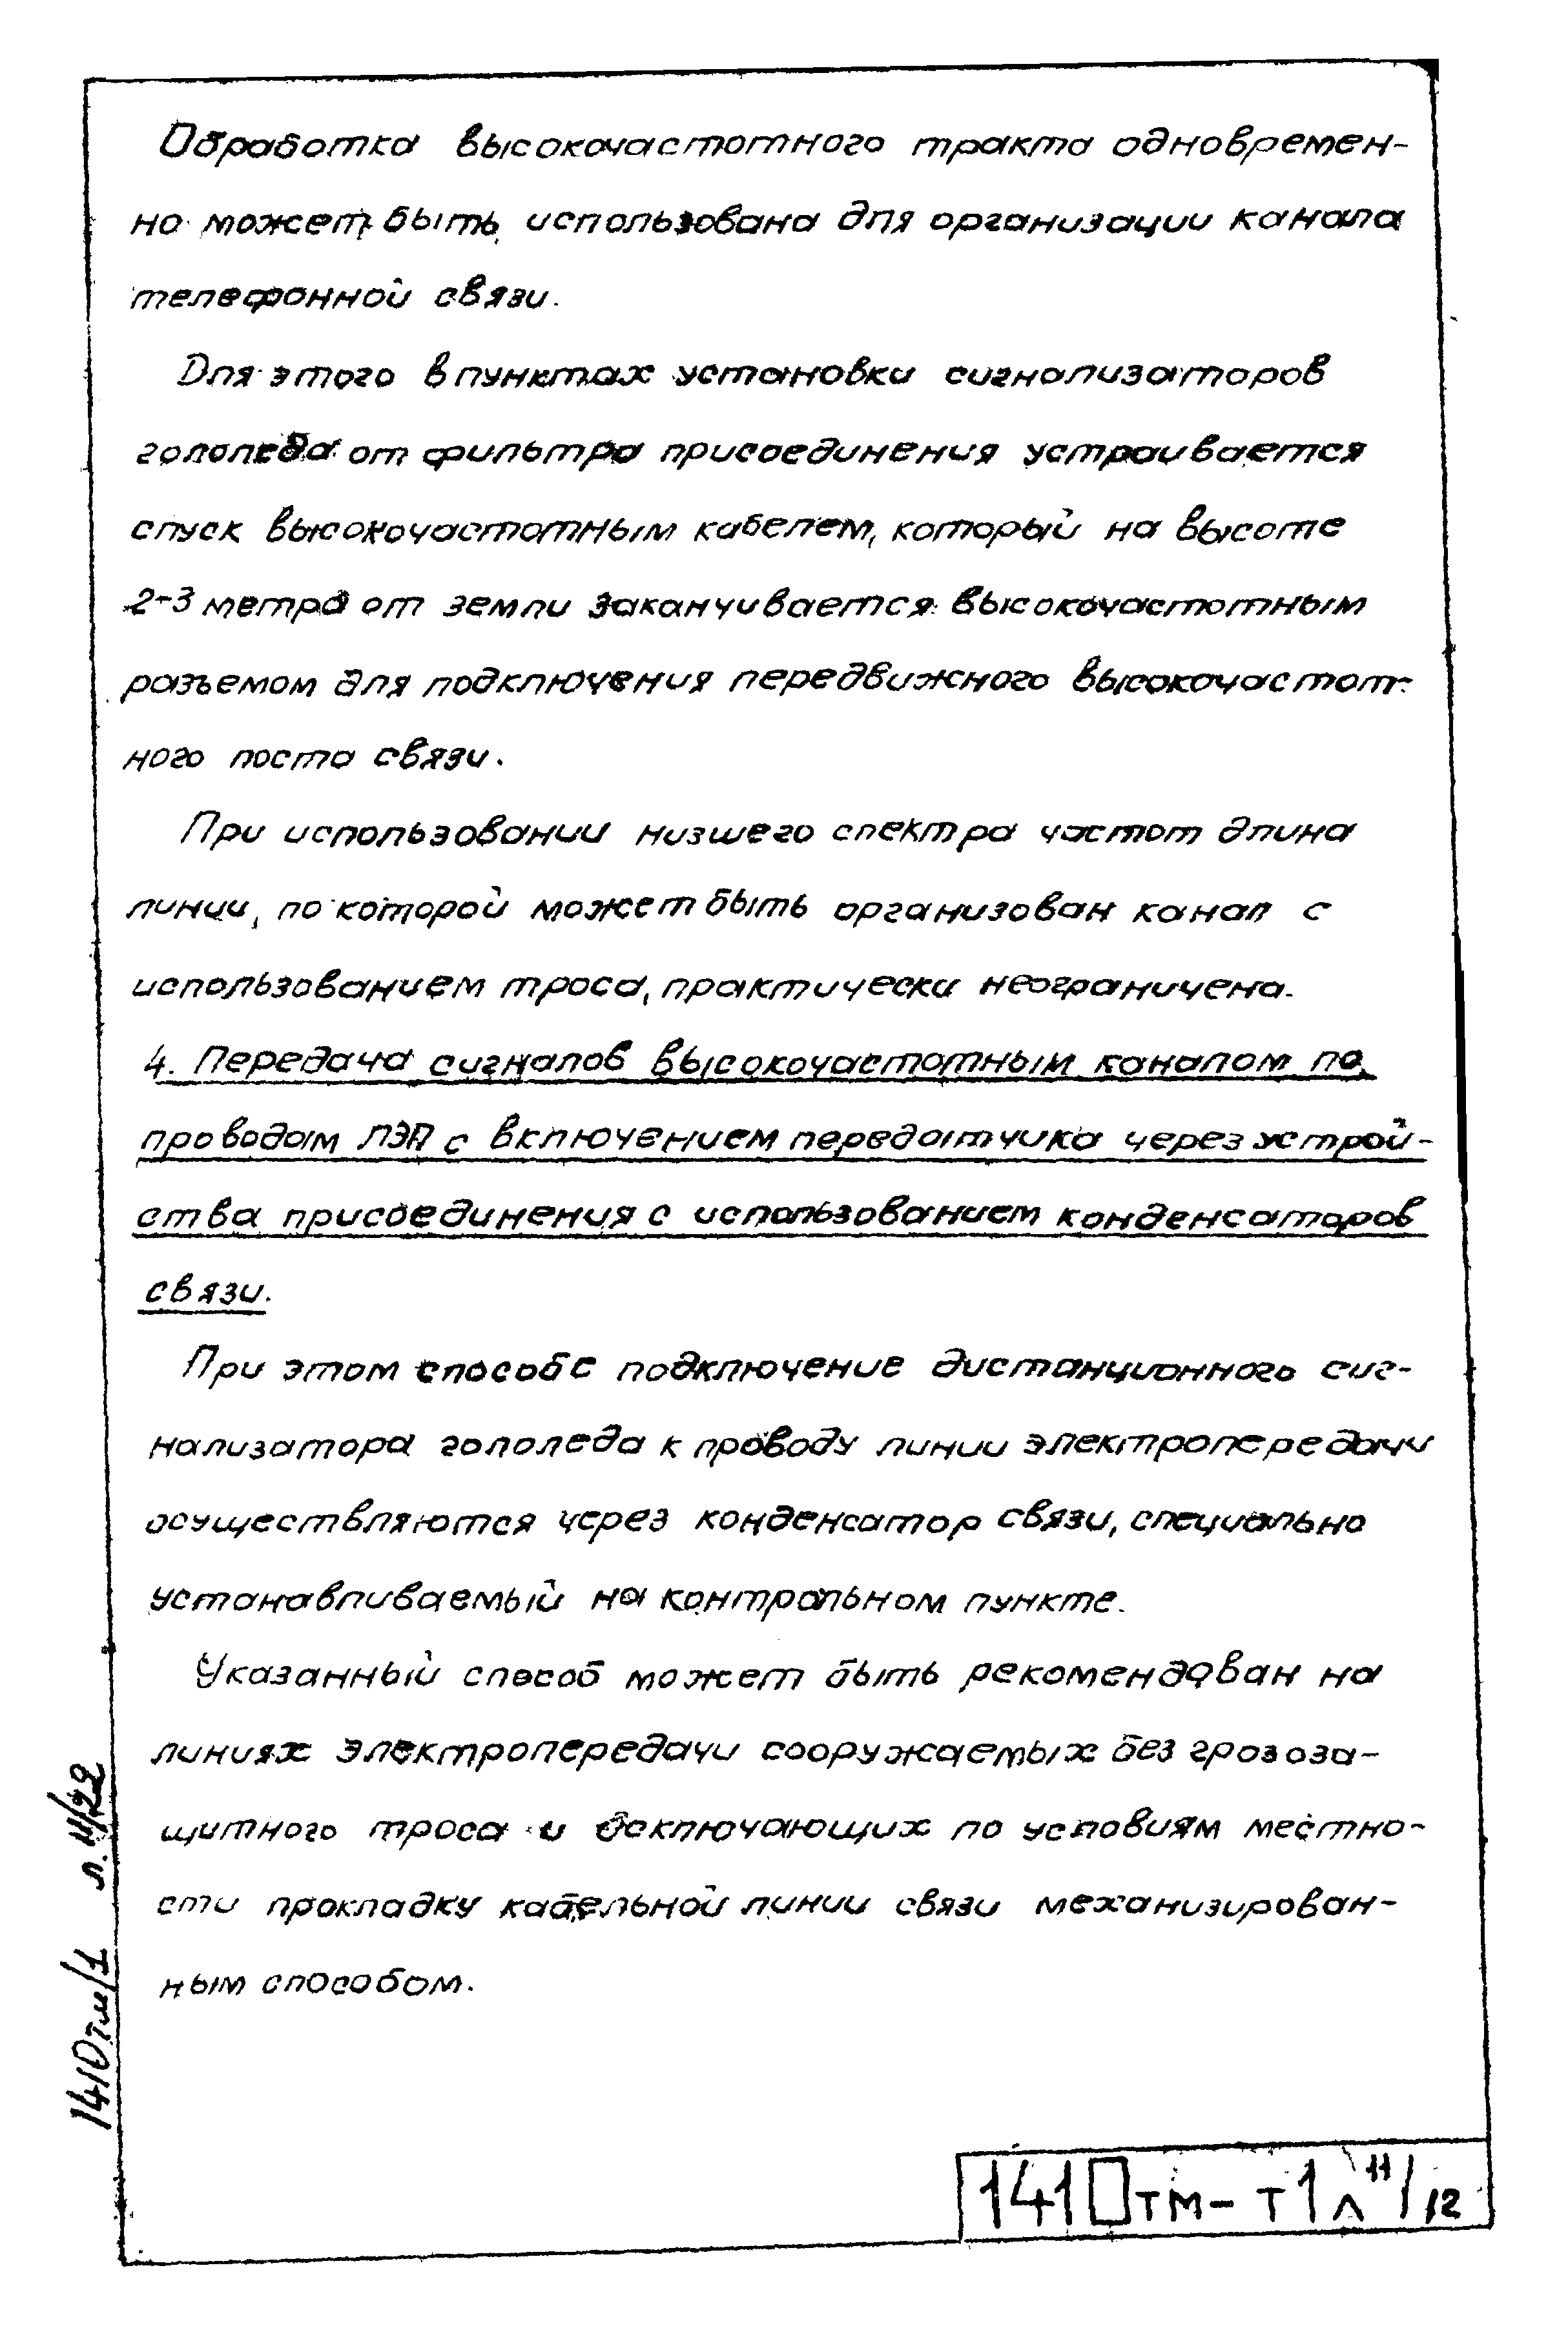 Обработка высокочастотного тракта одновремен-
но может быть использована для организации канала
телефонной связи.
Для этого в пунктах установки сигнализаторов
гололеда от фильтра присоединения устраивается
спуск высокочастотным кабелем, который на высоте
2-3 метра от земли заканчивается высокочастотным
разъемом для подключения передвижного высокочастот-
ного поста связи.
При использовании низшего спектра частот длина
линии, по которой может быть организован канал с
использованием троса, практически неограничена.
4. Передача сигналов высокочастотным каналом по
проводам ЛЭП с включением передатчика через устрой-
ства присоединения с использованием конденсаторов
связи.
При этом способе подключение дистанционного сиг-
нализатора гололеда к проводу линии электропередачи
осуществляются через конденсатор связи, специально
устанавливаемый на контрольном пункте.
Указанный способ может быть рекомендован на
линиях электропередачи сооружаемых без грозоза-
щитного троса и исключающих по условиям местно-
сти прокладку кабельной линии связи механизирован-
ным способом.
1410тм/1 л. 11/22
1410тм-т1 л 11/12